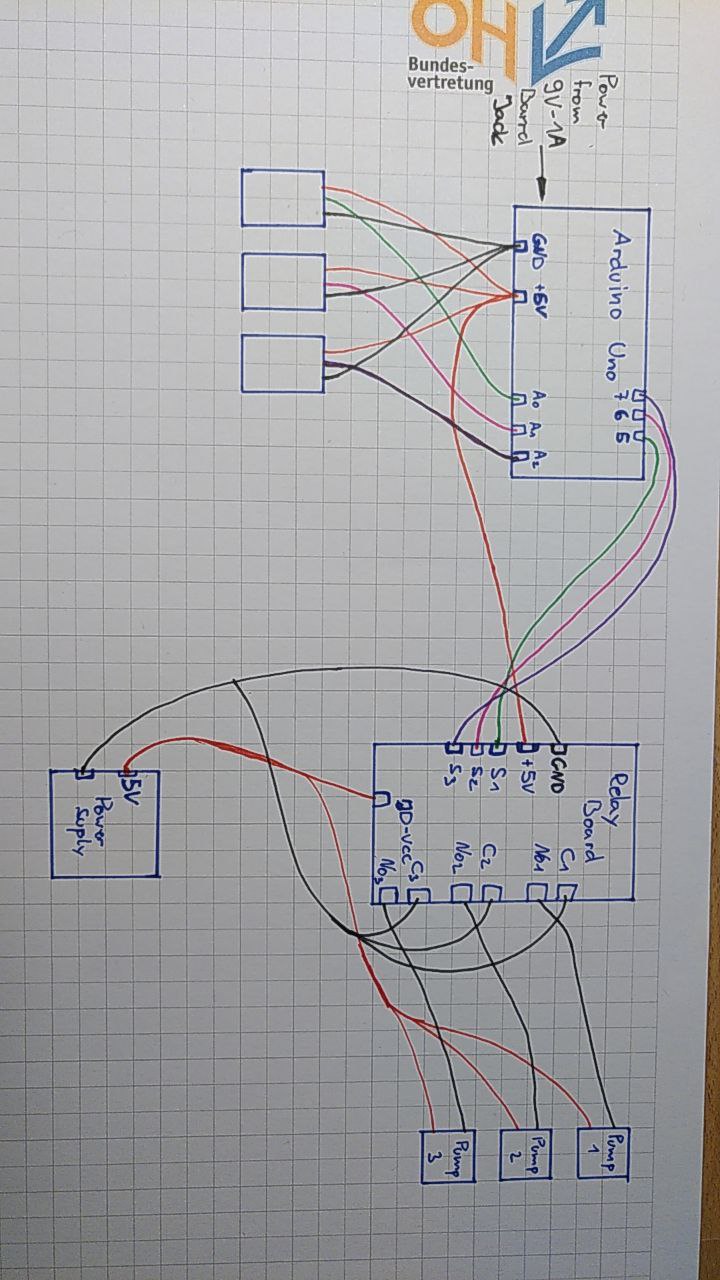 OH
Bundes-
vertretung
Power
from
9V-1A
Barrel
Jack
Arduino Uno
GND
+5V
A0
A1
A2
7
6
5
Relay
Board
GND
+5V
S1
S2
S3
JD-Vcc
C1
NO1
C2
NO2
C3
NO3
5V
Power
Suply
Pump
1
Pump
2
Pump
3